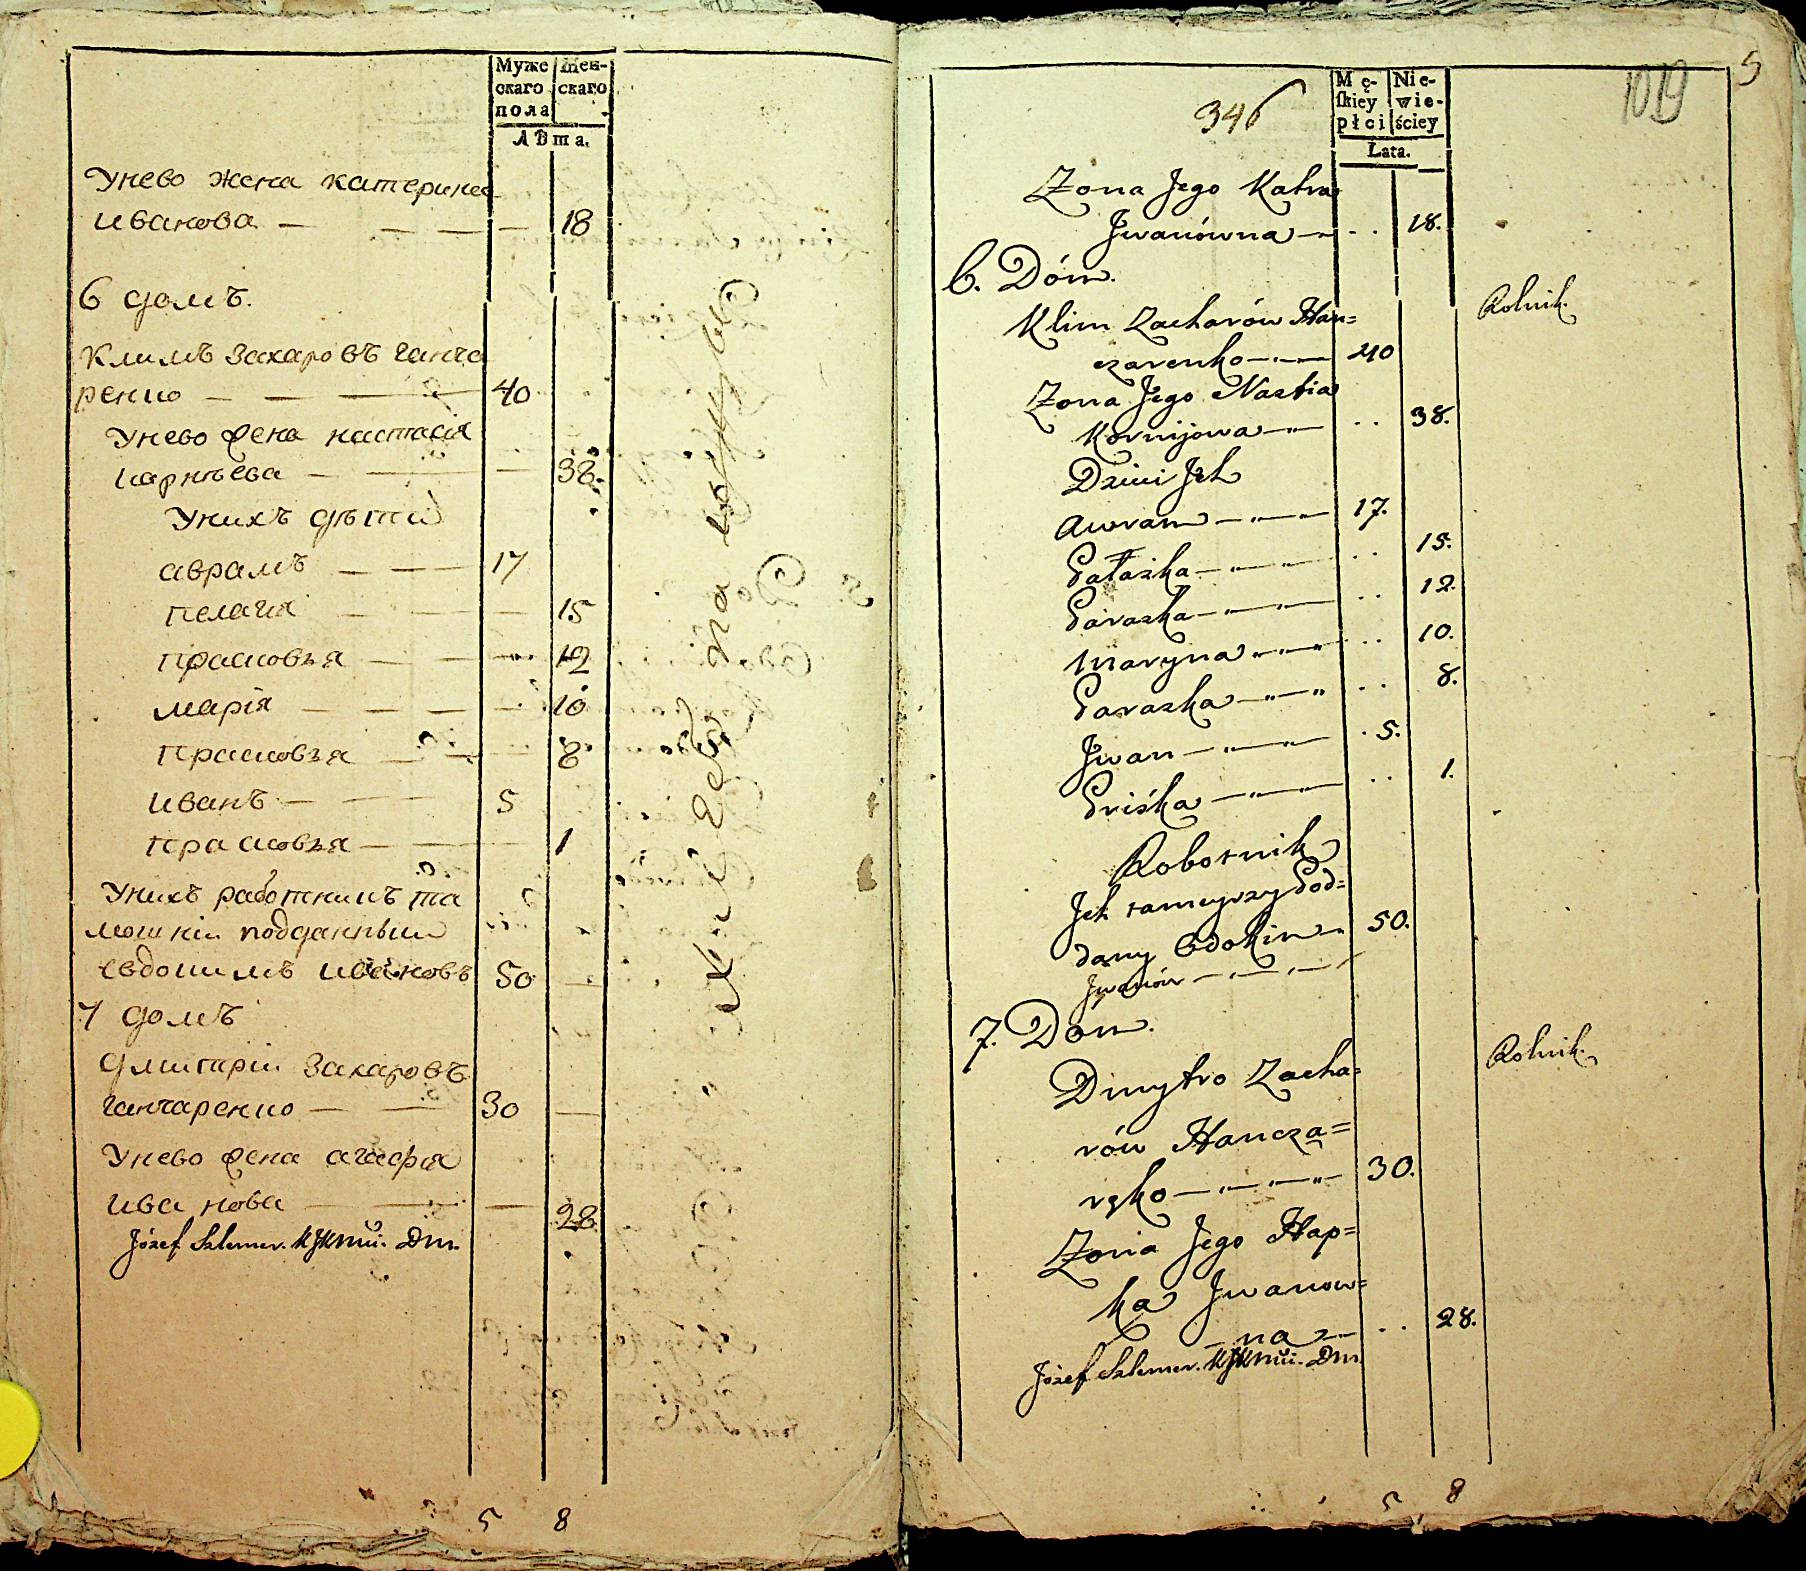 Муже Жен-
скаго скаго
пола
лѣта.
Унево жена катерина
иванова — — — — 18
6 домъ.
Климъ Захаровъ ганча
ренко — — — 40
Унево жена настасия
карнѣева — — — 38.
Унихъ дѣти
аврамъ — — 17
пелагия — — — 15
прасковья — — — 12
мария — — — — 10
прасковья — — — 8
иванъ — — 5
прасковья — — — 1
Унихъ работникъ та
мошній подданный
евдокимъ ивановъ 50 —
7 домъ
Дмитрій Захаровъ
ганчаренко — — 30 —
Унево жена агафия
ива нова — — — 28
Józef Szlemer.
5 8
346
1019
5
Mę- Nie-
skiey wie-
płci ściey
Lata.
Żona Jego Katra
Jwanówna — . . 18.
6. Dóm.
Rolnik.
Klim Zacharów Han=
czarenko — 40
Żona Jego Nastia
Kornijowa — . . 38.
Dzieci Jch
Awram — 17.
Pałazka — . . 15.
Paraska — . . 12.
Maryna — . . 10.
Paraska — . . 8.
Jwan — . 5.
Priśka — . . 1.
Robotnik
Jch tameyszy Pod=
dany Odokim 50.
Jwanów —
7. Dóm.
Rolnik.
Dmytro Zacha=
rów Hancza=
ręko — 30.
Żona Jego Hap=
ka Jwanow=
na — . . 28.
Józef Szlemer.
5 8